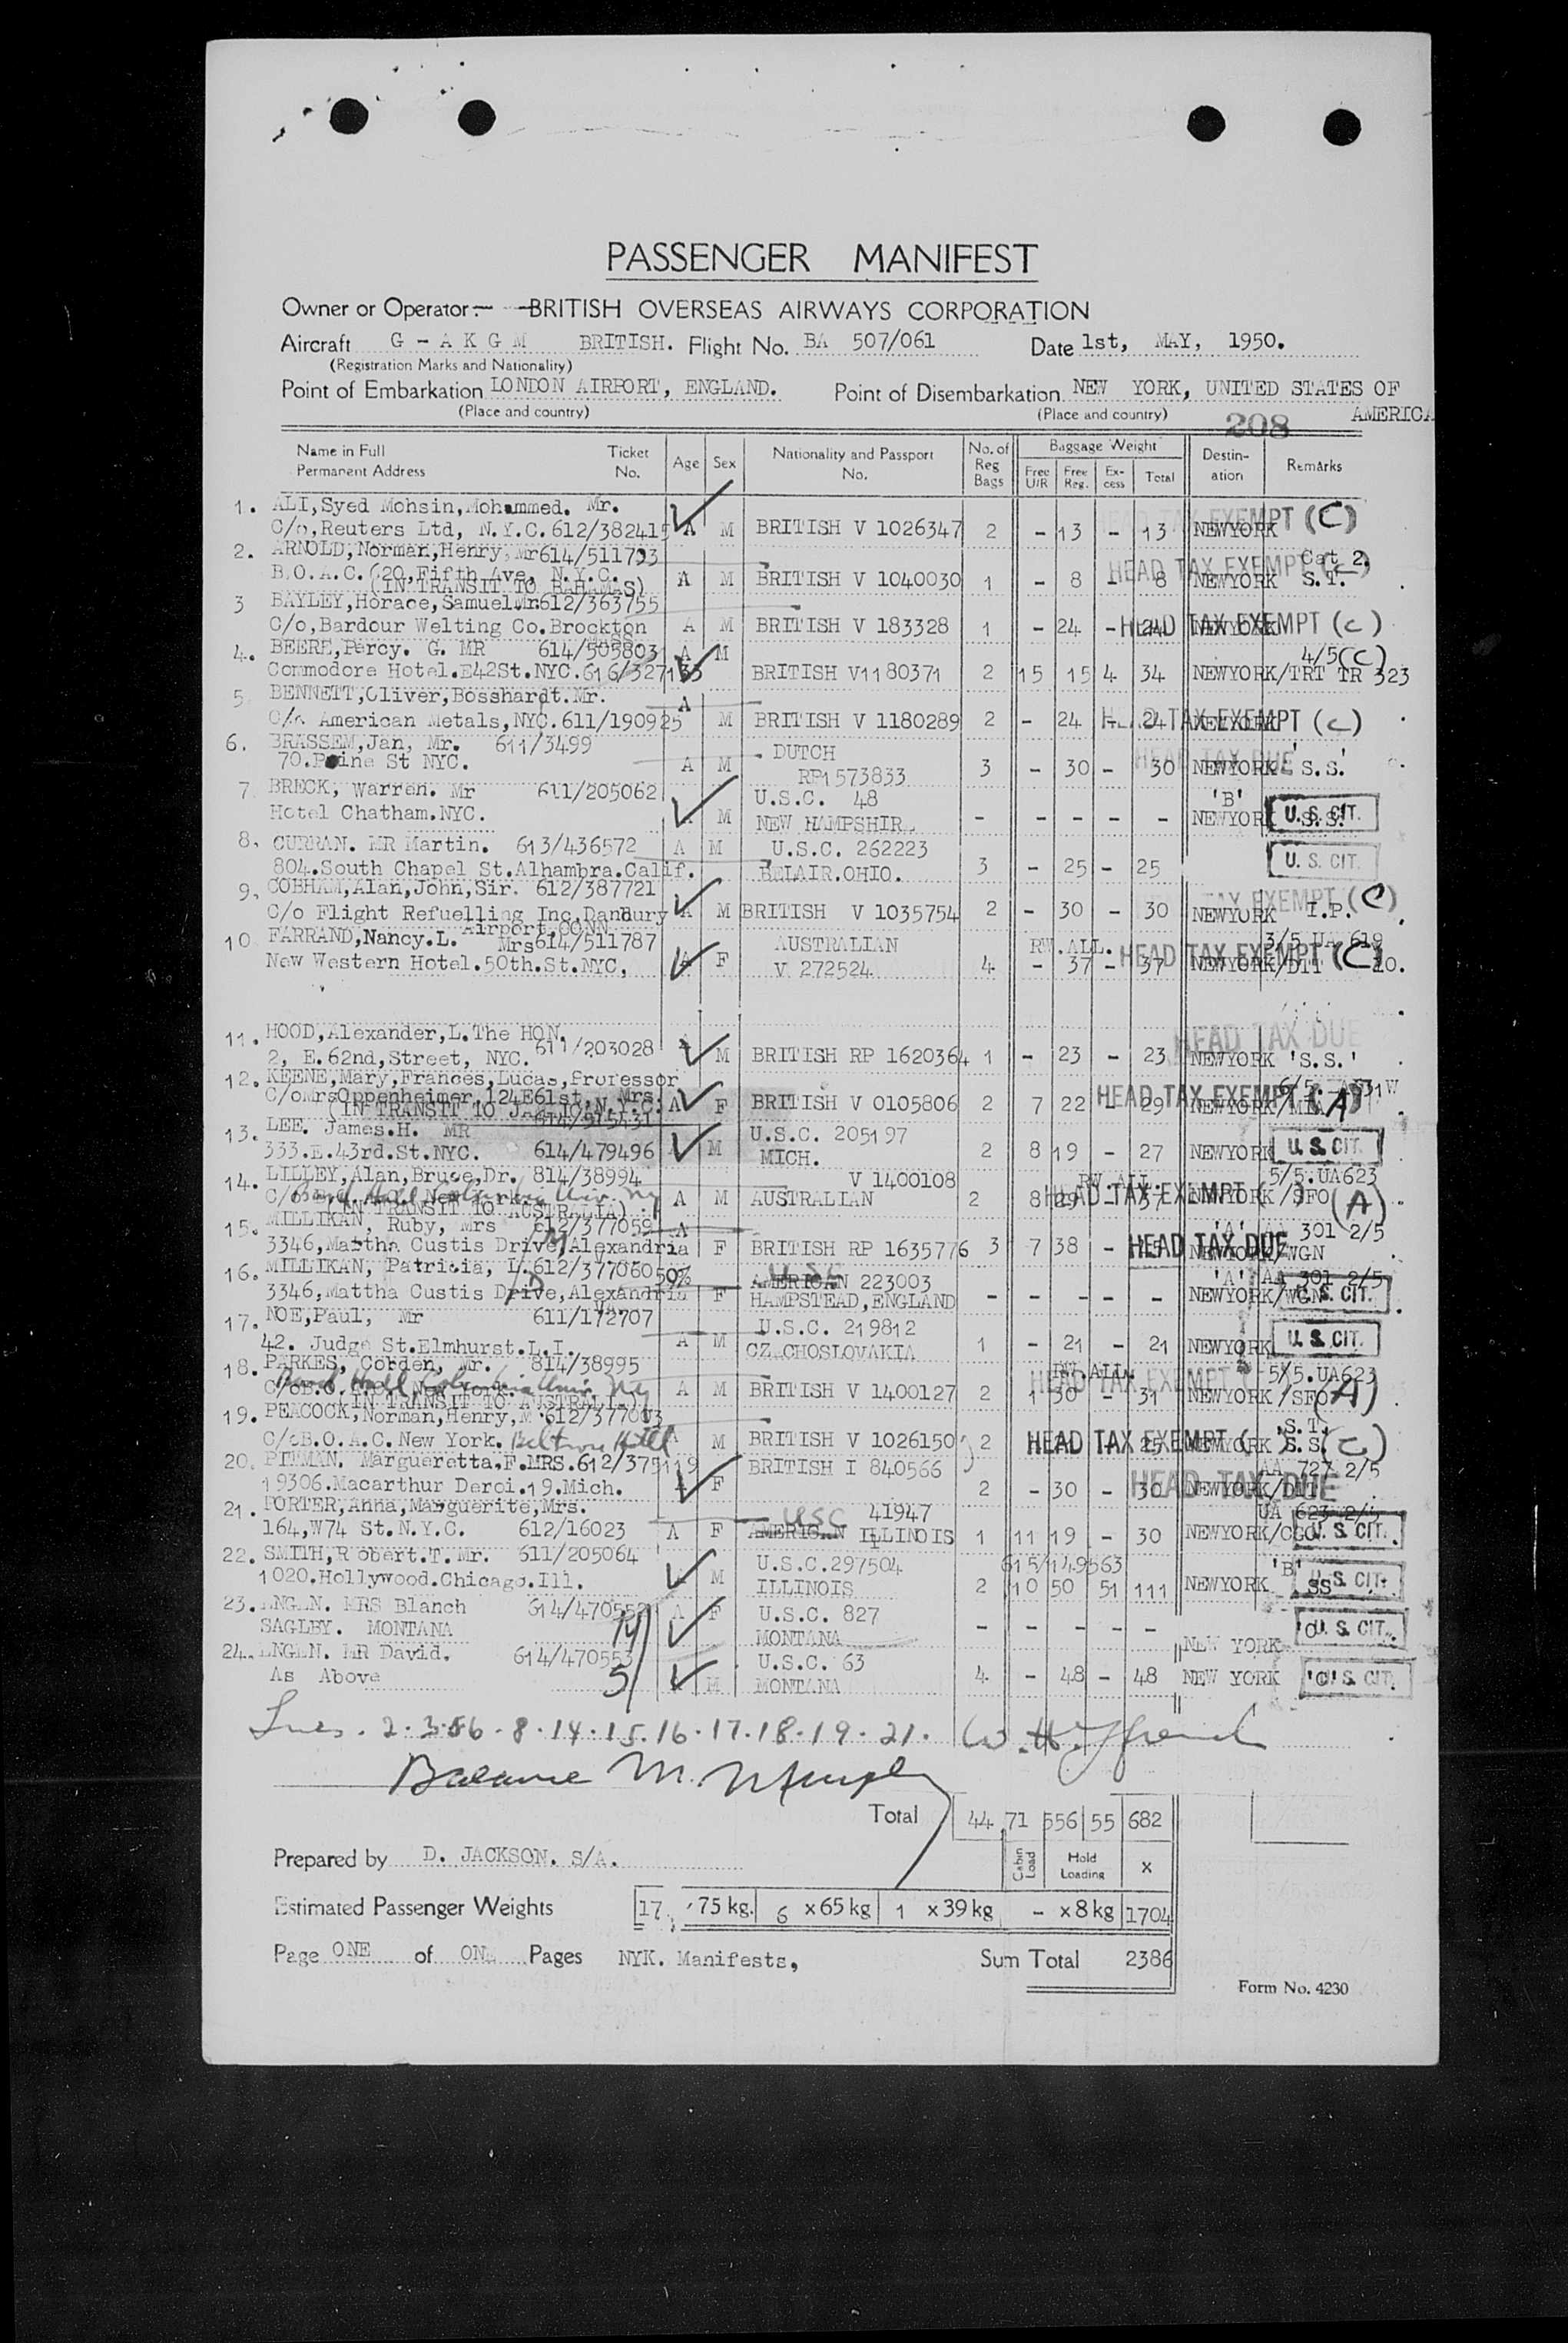 PASSENGER MANIFEST
Owner or Operator:— BRITISH OVERSEAS AIRWAYS CORPORATION
Aircraft G - A K G M BRITISH. Flight No. BA 507/061 Date 1st, MAY, 1950.
(Registration Marks and Nationality)
Point of Embarkation LONDON AIRPORT, ENGLAND. Point of Disembarkation NEW YORK, UNITED STATES OF
(Place and country) (Place and country) AMERICA
208
Name in Full Permanent Address Ticket No. Age Sex Nationality and Passport No. No. of Reg Bags Baggage Weight Free U/R Free Reg. Ex-cess Total Destin-ation Remarks
1. ALI,Syed Mohsin,Mohammed. Mr.
C/o,Reuters Ltd, N.Y.C. 612/382415 A M BRITISH V 1026347 2 - 13 - 13 NEWYORK HEAD TAX EXEMPT (C)
2. ARNOLD,Norman,Henry,Mr 614/511793 Cat 2.
B.O.A.C. 620,Fifth Ave, N.Y.C. A M BRITISH V 1040030 1 - 8 - 8 NEWYORK S.T. HEAD TAX EXEMPT (C)
(IN TRANSIT TO BAHAMAS)
3 BAYLEY,Horace,Samuel,Mr. 612/363755
C/o,Bardour Welting Co.Brockton A M BRITISH V 183328 1 - 24 - 24 NEWYORK HEAD TAX EXEMPT (C)
4. BEERE,Percy. G. MR 614/505803 A M 4/5 (C)
Commodore Hotel.E42St.NYC.616/327133 BRITISH V1180371 2 15 15 4 34 NEWYORK/TRT TR 323
5 BENNETT,Oliver,Bosshardt.Mr. A
C/o American Metals,NYC.611/190925 M BRITISH V 1180289 2 - 24 - 24 NEWYORK HEAD TAX EXEMPT (C)
6. BRASSEM,Jan, Mr. 611/3499 DUTCH HEAD TAX DUE
70.Paine St NYC. A M RP1573833 3 - 30 - 30 NEWYORK 'S.S.'
7. BRECK, Warren. Mr 611/205062 U.S.C. 48 'B'
Hotel Chatham.NYC. M NEW HAMPSHIR. - - - - - NEWYORK 'S.S.' U. S. CIT.
8. CURRAN. MR Martin. 613/436572 A M U.S.C. 262223
804.South Chapel St.Alhambra.Calif. BELAIR.OHIO. 3 - 25 - 25 U. S. CIT.
9. COBHAM,Alan,John,Sir. 612/387721 HEAD TAX EXEMPT (C)
C/o Flight Refuelling Inc,Danbury A M BRITISH V 1035754 2 - 30 - 30 NEWYORK I.P.
Airport,CONN.
10 FARRAND,Nancy.L. Mrs 614/511787 AUSTRALIAN RW.ALL. 3/5 UA 619
New Western Hotel.50th.St.NYC, A F V 272524 4 - 37 - 37 NEWYORK/DTT HEAD TAX EXEMPT (C)
11. HOOD,Alexander,L.The HON. HEAD TAX DUE
2, E.62nd,Street, NYC. 611/203028 A M BRITISH RP 1620364 1 - 23 - 23 NEWYORK 'S.S.'
12. KEENE,Mary,Frances,Lucas,Professor
C/oMrsOppenheimer,124E61st Mrs. A F BRITISH V 0105806 2 7 22 - 29 NEWYORK/MIA HEAD TAX EXEMPT (A)
13. LEE. James.H. MR U.S.C. 205197
333.E.43rd.St.NYC. 614/479496 M MICH. 2 8 19 - 27 NEWYORK U. S. CIT.
14. LILLEY,Alan,Bruce,Dr. 814/38994 V 1400108 RW.ALL. 5/5.UA623
A M AUSTRALIAN 2 8 29 - 37 NEWYORK/SFO HEAD TAX EXEMPT (A)
(IN TRANSIT TO AUSTRALIA)
15. MILLIKAN, Ruby, Mrs 612/377059 A 'A' AA 301 2/5
3346,Martha Custis Drive,Alexandria F BRITISH RP 1635776 3 7 38 - 45 NEWYORK/WGN HEAD TAX DUE
16. MILLIKAN, Patricia, L. 612/377060 50% USC AMERICAN 223003 'A' AA 301 2/5
3346,Mattha Custis Drive,Alexandria F HAMPSTEAD,ENGLAND - - - - - NEWYORK/WGN U. S. CIT.
17. NOE,Paul, Mr 611/172707 U.S.C. 219812
42. Judge St.Elmhurst.L.I. A M CZECHOSLOVAKIA 1 - 21 - 21 NEWYORK U. S. CIT.
18. PARKES, Corden, Mr. 814/38995 RW.ALL. 5/5.UA623
A M BRITISH V 1400127 2 1 30 - 31 NEWYORK/SFO HEAD TAX EXEMPT (A)
(IN TRANSIT TO AUSTRALIA)
19. PEACOCK,Norman,Henry,M 612/377003 S.T.
C/oB.O.A.C.New York. M BRITISH V 1026150 2 NEWYORK S.S. HEAD TAX EXEMPT (C)
20. PITMAN. Margueretta,F.MRS.612/375119 BRITISH I 840566 AA 727 2/5
19306.Macarthur Deroi.19.Mich. F 2 - 30 - 30 NEWYORK/DTT HEAD TAX DUE
21. PORTER,Anna,Marguerite,Mrs. USC 41947 UA 623 2/5
164,W74 St.N.Y.C. 612/16023 A F AMERICAN ILLINOIS 1 11 19 - 30 NEWYORK/CGO U. S. CIT.
22. SMITH,Robert.T.Mr. 611/205064 U.S.C.297504 615/149563 'B'
1020.Hollywood.Chicago.Ill. M ILLINOIS 2 10 50 51 111 NEWYORK SS U. S. CIT.
23. ENGEN. MRS Blanch 614/470552 A F U.S.C. 827
SAGLEY. MONTANA MONTANA - - - - - NEW YORK U. S. CIT.
24. ENGEN. MR David. 614/470553 U.S.C. 63
As Above 5/ M MONTANA 4 - 48 - 48 NEW YORK 'C' U. S. CIT.
2. 3. 5 6. 8. 14. 15. 16. 17. 18. 19. 21.
Balance M.
Total 44 71 556 55 682
Prepared by D. JACKSON. S/A. Cabin Load Hold Loading x
Estimated Passenger Weights 17 x 75 kg. 6 x 65 kg 1 x 39 kg - x 8 kg 1704
Page ONE of ONE Pages NYK. Manifests, Sum Total 2386
Form No. 4230